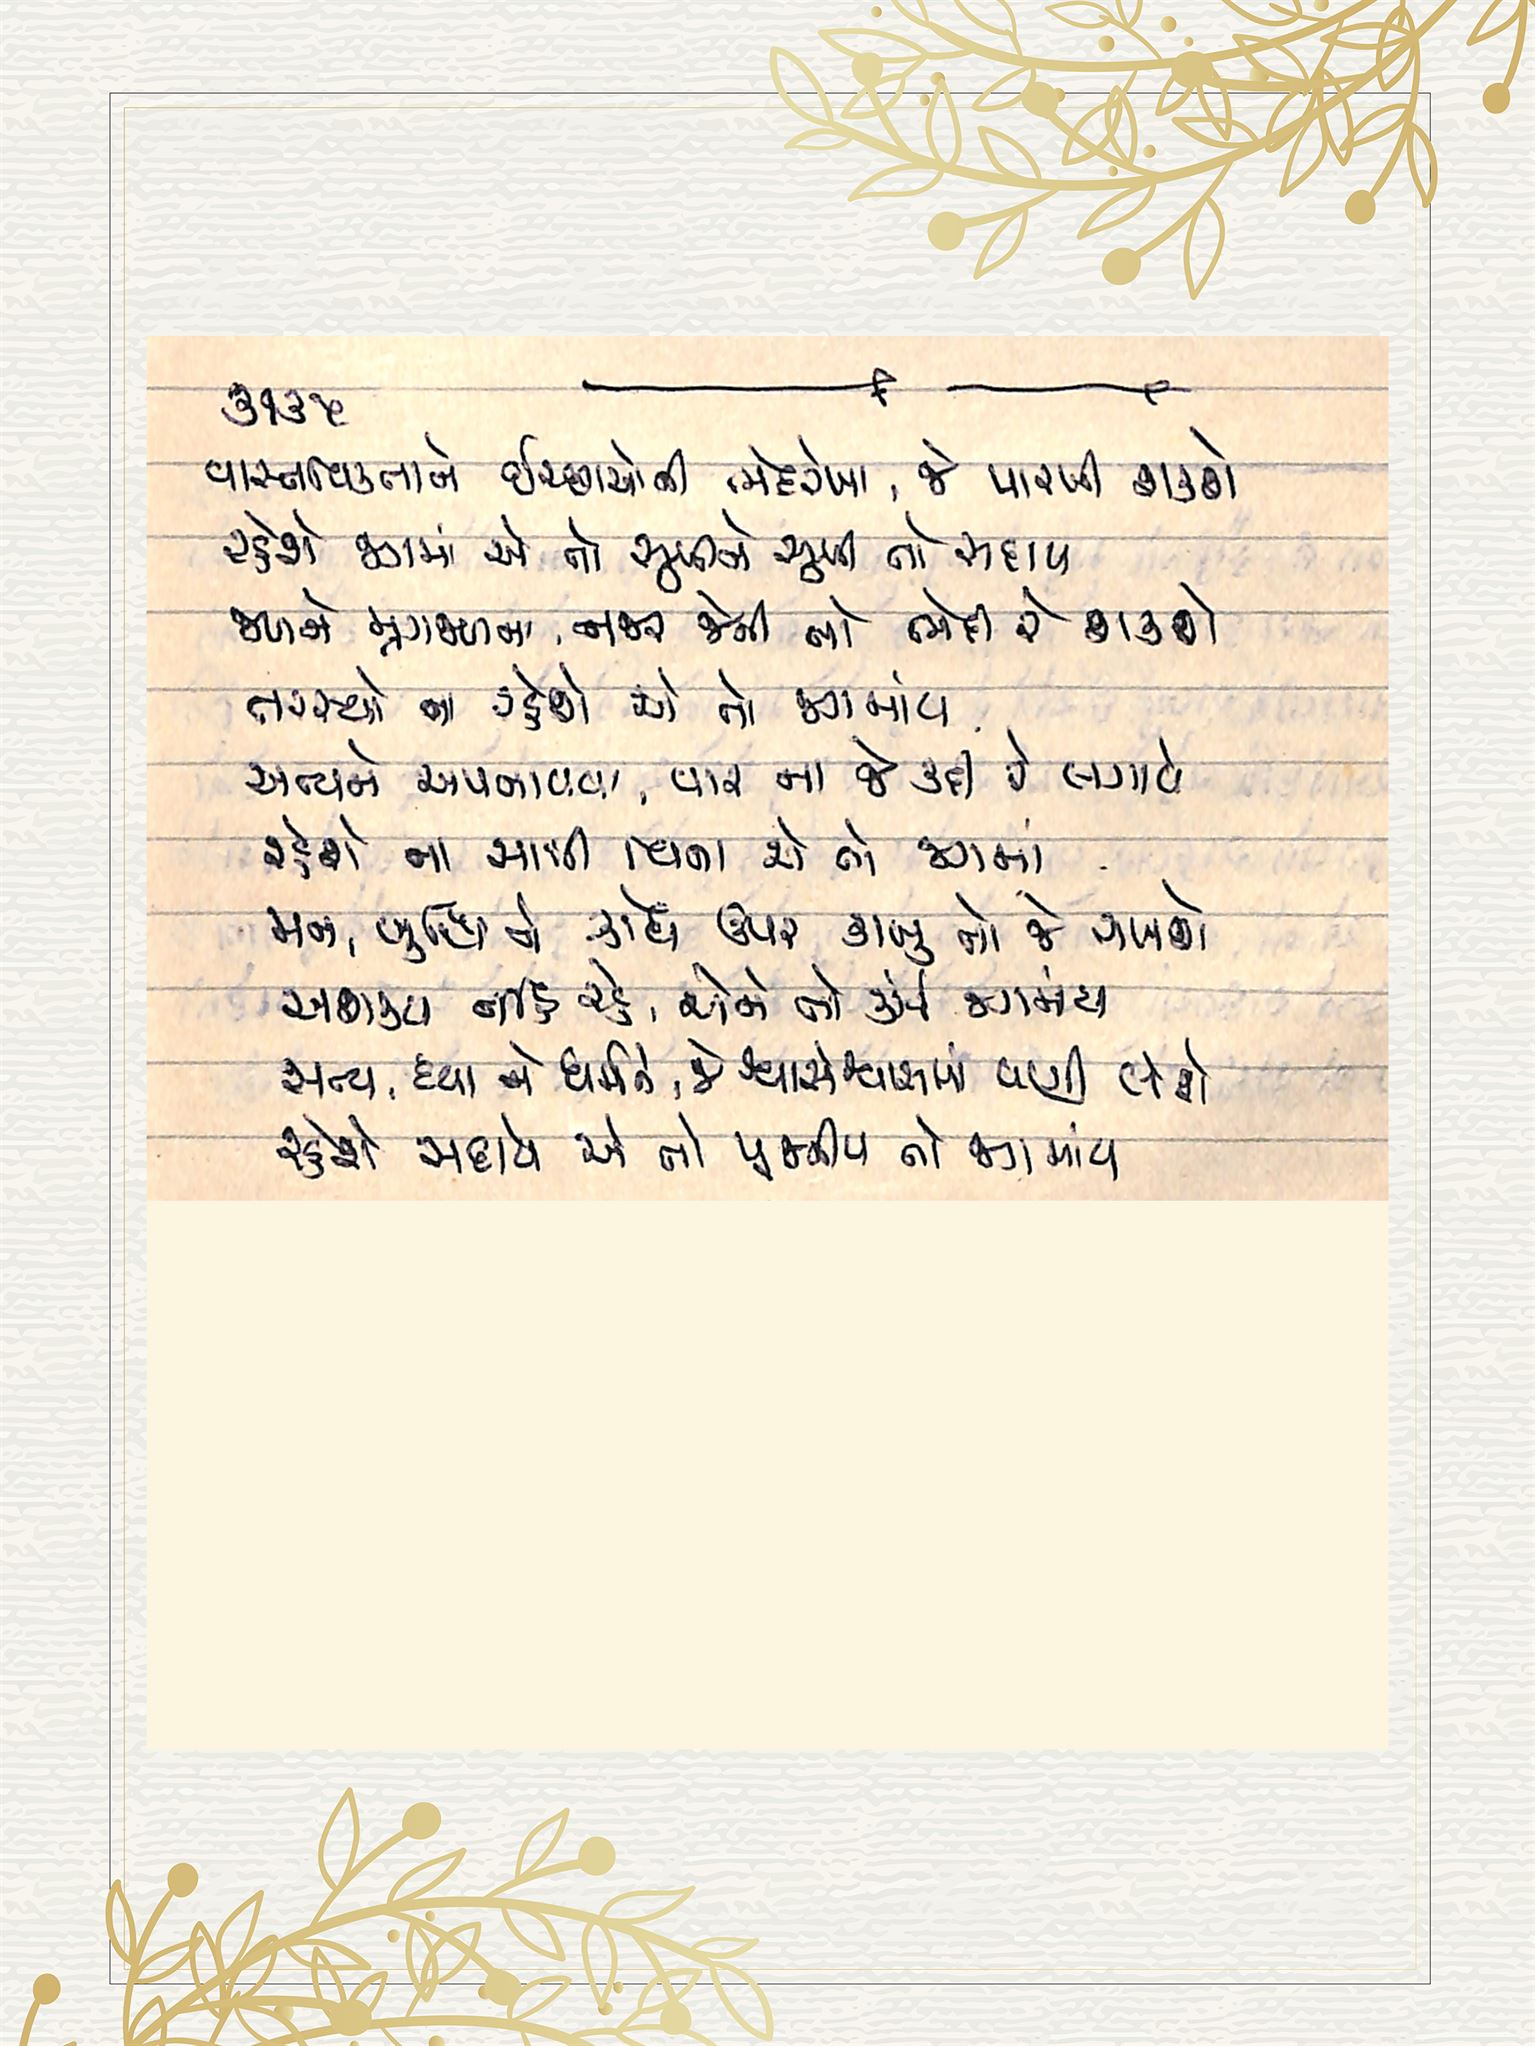 ૩૧૩૪
વાસ્તવિકતાને ઈચ્છાઓની ભેદરેખા, જે પારખી શકશે
રહેશે જગમાં એ તો સુખીને સુખી તો સદાય
જળને મૃગજળના, નજર જેની તો ભેદી રે શકશે
તરસ્યો ના રહેશે એ તો જગમાંય
અન્યને અપનાવવા, વાર ના જે કદી રે લગાવે
રહેશે ના સાથી વિના એ તો જગમાં
મન, બુદ્ધિ ને ક્રોધ ઉપર કાબૂ તો જે રાખશે
અશક્ય નહિ રહે, એને તો કાંઈ જગમાંય
સત્ય, દયા ને ધર્મને, જે શ્વાસેશ્વાસમાં વણી લેશે
રહેશે સદાયે એ તો પૂજનીય તો જગમાંય